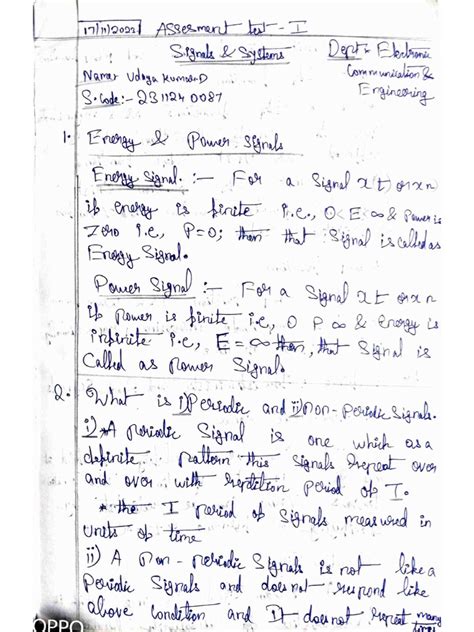 17/11/2022 Assesment test - I
Signals & Systems
Dept: Electronic
Communication &
Engineering
Name: Udaya Kumar.D
S.Code:- 231124 0087
1. Energy & Power Signals
Energy Signal :- For a Signal x(t) or x n
if energy is finite i.e., 0<E ∞ & Power is
Zero i.e., P=0; then that Signal is called as
Energy Signal.
Power Signal :- For a Signal x t or x n
if power is finite i.e., 0 P ∞ & Energy is
infinite i.e., E = ∞ then, that Signal is
Called as Power Signal.
2. What is i) Periodic and ii) Non-Periodic Signals.
i) A Periodic Signal is one which as a
definite pattern this Signals repeat over
and over with repitition period of T.
* the I period of Signals measured in
units of time
ii) A Non-periodic Signals is not like a
Periodic Signals and does not respond like
above condition and It does not repeat many
OPPO